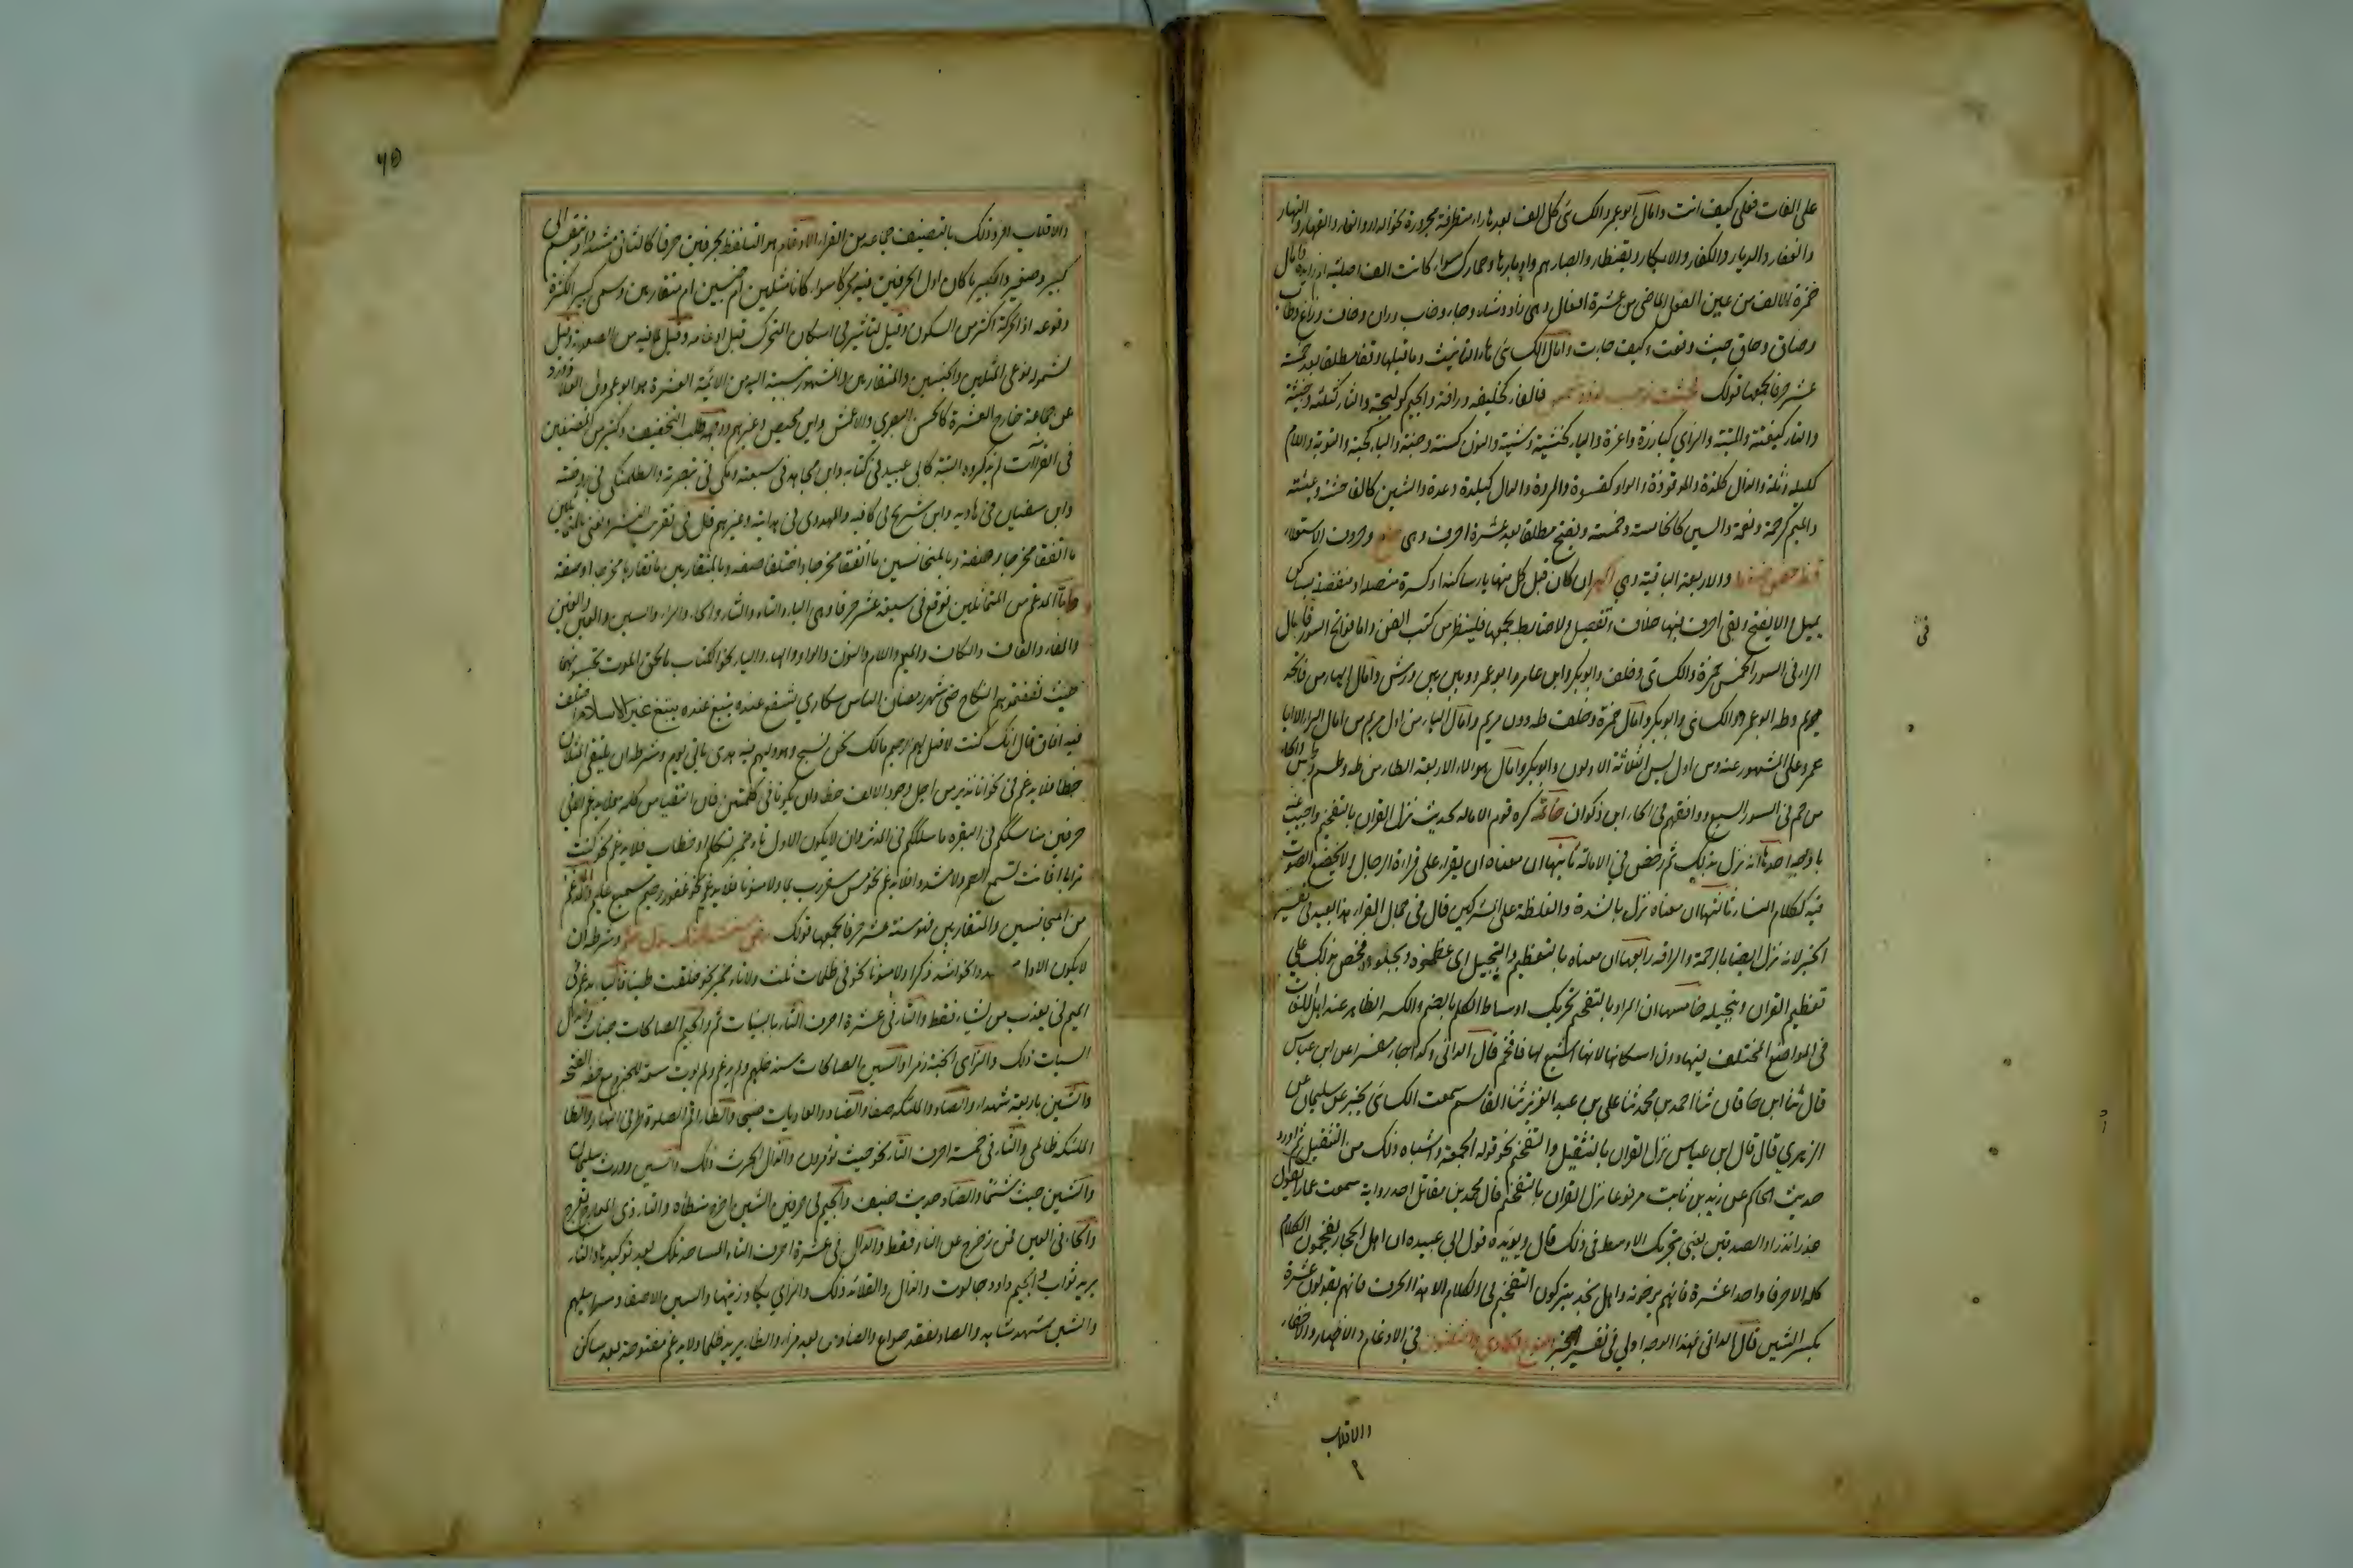 على الفات فعلى كيف اتت وامال ابو عمرو والكسائى كل الف بعدها راء متطرفة مجرورة نحو الدار والنار والقهار والنهار
والغفار والديار والكفار والابكار وبقنطار وابصارهم واوبارها وحمارك سواء كانت الف اصلية ام زايدة وامال
حمزة الالف من عين الفعل الماضى من عشرة افعال وهى زاد وشاء وجاء وخاب وران وخاف وزاغ وطاب
وضاق وحاق حيث وقعت وكيف جاءت وامال الكسائى هاء التانيث وما قبلها وقفا مطلقا بعد خمسة
عشر حرفا يجمعها قولك فجثت زينب لذود شمس فالفاء كخليفة ورافة والجيم كوليجة والثاء كثلثة وخبيثة
والتاء كبغتة والميتة والزاى كبارزة واعزة والياء كخشية وشية والنون كسنة وجنة والباء كحبة والتوبة واللام
كليلة وثلة والذال كلذة والموقوذة والواو كقسوة والمروة والدال كبلدة وعدة والشين كالفاحشة وعيشة
والميم كرحمة ونعمة والسين كالخامسة وخمسة ويفتح مطلقا بعد عشرة احرف وهى وحروف الاستعلاء
قظ خص ضغط والاربعة الباقية وهى اكهر ان كان قبل كل منها ياء ساكنة او كسرة متصلة او منفصلة بساكن
يميل والا يفتح وبقى احرف فيها خلاف وتفصيل ولا ضابط يجمعها فلينظر من كتب الفن واما فواتح السور فامال
الر فى السور الخمس حمزة والكسائى وخلف وابو بكر وابن عامر وابو عمرو وبين بين ورش وامال الهاء من فاتحة
مريم وطه ابو عمرو والكسائى وابو بكر وامال حمزة وخلف طه دون مريم وامال الياء من اول مريم من امال الر الا ابا
عمرو على المشهور عنه ومن اول يس الثلاثة الاولون وابو بكر وامال هولاء الاربعة الطاء من طه وطسم وطس والحاء
من حم فى السور السبع ووافقهم فى الحاء ابن ذكوان خاتمة كره قوم الامالة لحديث نزل القران بالتفخيم واجيب عنه
باوجه احدها انه نزل بذلك ثم رخص فى الامالة ثانيها ان معناه ان يقرا على قراءة الرجال لا يخضع الصوت
فيه ككلام النساء ثالثها ان معناه نزل بالشدة والغلظة على المشركين قال فى جمال القراء هذا بعيد فى تفسير
الخبر لانه نزل ايضا بالرحمة والرافة رابعها ان معناه بالتعظيم والتبجيل اى عظموه وبجلوه فحض بذلك على
تعظيم القران وتبجيله خامسها ان المراد بالتفخيم تحريك اوساط الكلم بالضم والكسر الظاهر عند اهل اللغات
فى المواضع المختلف فيها دون اسكانها لانه اشبع لها وافخم قال الدانى وكذا جاء مفسرا عن ابن عباس
قال ثنا ابن خاقان ثنا احمد بن محمد ثنا على بن عبد العزيز ثنا القاسم سمعت الكسائى يخبر عن سليمان عن
الزهرى قال قال ابن عباس نزل القران بالتثقيل والتفخيم نحو قوله الجمعة واشباه ذلك من التثقيل ثم اورد
حديث الحاكم عن زيد بن ثابت مرفوعا نزل القران بالتفخيم قال محمد بن مقاتل احد رواته سمعت عمارا يقول
عذرا نذرا والصدفين يعنى تحريك الاوسط فى ذلك قال ويويده قول ابى عبيدة ان اهل الحجاز يفخمون الكلام
كله الا حرفا واحدا عشرة فانهم يجزمونه واهل نجد يتركون التفخيم فى الكلام الا هذا الحرف فانهم يقولون عشرة
بكسر الشين قال الدانى فهذا الوجه اولى فى تفسير الخبر النوع الحادى والثلثون فى الادغام والاظهار والاخفاء
والاقلاب
فى
٦٥
والاقلاب افرد ذلك بالتصنيف جماعة من القراء الادغام هو التلفظ بحرفين حرفا كالثانى مشددا وينقسم الى
كبير وصغير فالكبير ما كان اول الحرفين فيه متحركا سواء كانا مثلين ام جنسين ام متقاربين وسمى كبيرا لكثرة
وقوعه اذ الحركة اكثر من السكون وقيل لتاثيره فى اسكان المتحرك قبل ادغامه وقيل لما فيه من الصعوبة وقيل
لشموله نوعى المثلين والجنسين والمتقاربين والمشهور بنسبته اليه من الائمة العشرة هو ابو عمرو بن العلاء وورد
عن جماعة خارج العشرة كالحسن البصرى والاعمش وابن محيصن وغيرهم ووجهه طلب التخفيف وكثير من المصنفين
فى القراآت لم يذكروه البتة كابى عبيد فى كتابه وابن مجاهد فى سبعته ومكى فى تبصرته والطلمنكى فى روضته
وابن سفيان فى هاديه وابن شريح فى كافيه والمهدوى فى هدايته وغيرهم قال فى تقريب النشر ونعنى بالمتماثلين
ما اتفقا مخرجا وصفة وبالمتجانسين ما اتفقا مخرجا واختلفا صفة وبالمتقاربين ما تقاربا مخرجا او صفة
فاما المدغم من المتماثلين فوقع فى سبعة عشر حرفا وهى الباء والتاء والثاء والحاء والراء والسين والعين والغين
والفاء والقاف والكاف والميم واللام والنون والواو والهاء والياء نحو الكتاب بالحق الموت تحبسونهما
حيث ثقفتموهم النكاح حتى شهر رمضان الناس سكارى يشفع عنده يبتغ غير الاسلام اختلف
فيه افاق قال انك كنت لا قبل لهم الرحيم مالك نحن نسبح وهو وليهم فيه هدى ياتى يوم وشرطه ان يلتقى المثلان
خطا فلا يدغم فى نحو انا نذير من اجل وجود الالف خطا وان يكونا فى كلمتين فان التقيا من كلمة فلا يدغم الا فى
حرفين مناسككم فى البقرة ما سلككم فى المدثر وان لا يكون الاول تاء ضمير لمتكلم او خطاب فلا يدغم نحو كنت
ترابا افانت تسمع الصم ولا مشددا فلا يدغم نحو مس سقر رب بما ولا منونا فلا يدغم نحو غفور رحيم سميع عليم والمدغم
من المتجانسين والمتقاربين فهو ستة عشر حرفا يجمعها قولك رض سنشد حجتك بذل قثم وشرطه ان
لا يكون الاول مشددا نحو اشد ذكرا ولا منونا نحو فى ظلمات ثلث ولا تاء ضمير نحو خلقت طينا فالباء يدغم فى
الميم فى يعذب من يشاء فقط والتاء فى عشرة احرف الثاء بالبينات ثم والجيم الصالحات جنات والذال
السيات ذلك والزاى الجنة زمرا والسين الصالحات سندخلهم ولم يدغم ولم يوت سعة للجزم مع خفة الفتحة
والشين باربعة شهداء والصاد والملئكة صفا والضاد والعاديات ضبحا والطاء اقم الصلوة طرفى النهار والظاء
الملئكة ظالمى والثاء فى خمسة احرف التاء نحو حيث تؤمرون والذال الحرث ذلك والسين وورث سليمان
والشين حيث شئتما والضاد حديث ضيف والجيم فى حرفين الشين اخرج شطاه والتاء ذى المعارج تعرج
والحاء فى العين فمن زحزح عن النار فقط والدال فى عشرة احرف التاء المساجد تلك بعد توكيدها والثاء
يريد ثواب والجيم داود جالوت والذال والقلائد ذلك والزاى يكاد زيتها والسين الاصفاد سرابيلهم
والشين شهد شاهد والصاد نفقد صواع والضاد من بعد ضراء والظاء يريد ظلما ولا يدغم مفتوحة بعد ساكن